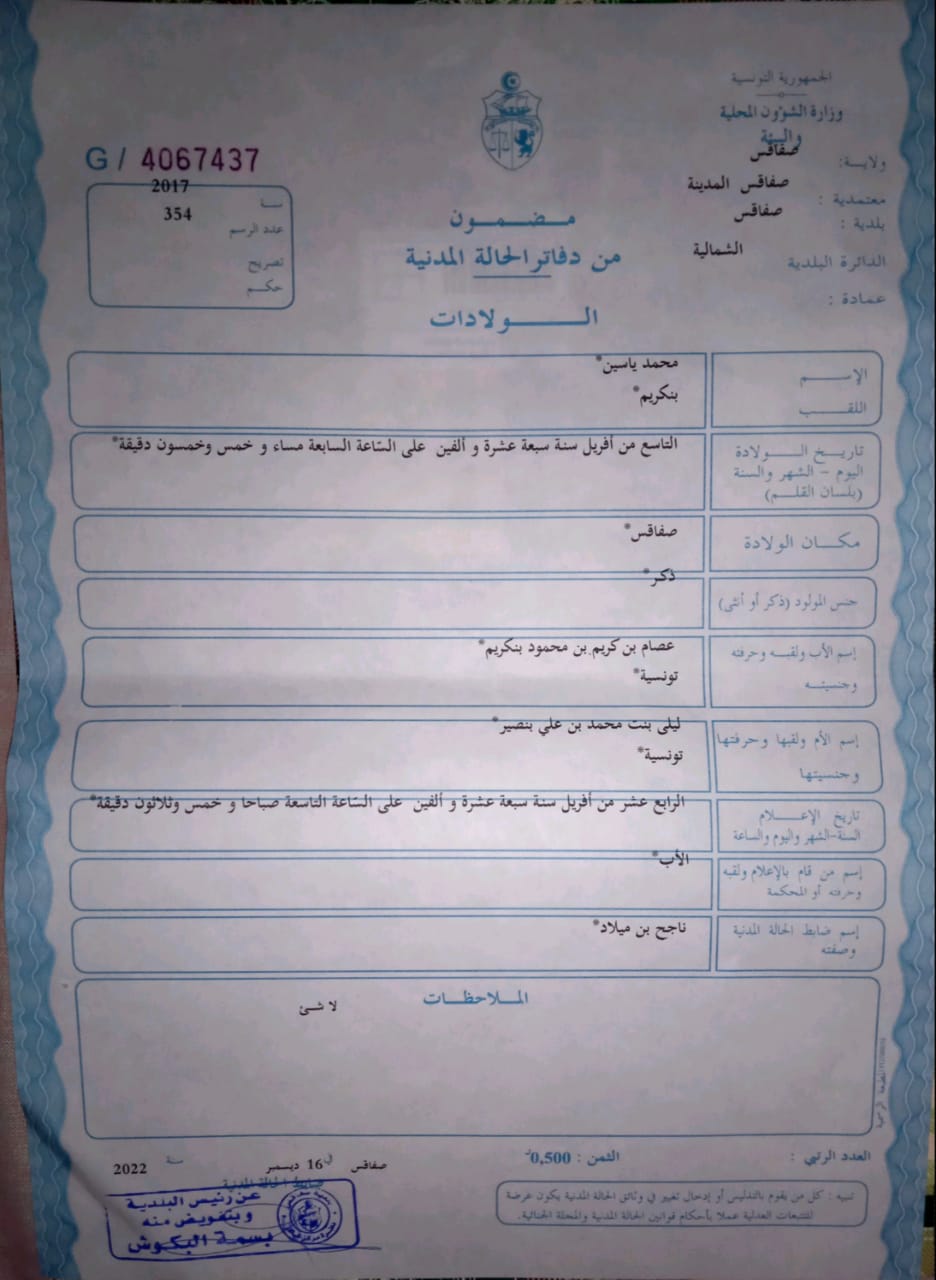 الجمهورية التونسية
وزارة الشؤون المحلية
والبيئة
ولاية: صفاقس
معتمدية : صفاقس المدينة
بلدية : صفاقس
الدائرة البلدية الشمالية
عمادة :
G / 4067437
سنة 2017
عدد الرسم 354
تصريح
حكم
مضمون
من دفاتر الحالة المدنية
الولادات
الإسم محمد ياسين*
اللقب بنكريم*
تاريخ الولادة
اليوم - الشهر والسنة
(بلسان القلم)
التاسع من أفريل سنة سبعة عشرة و ألفين على السّاعة السابعة مساء و خمس وخمسون دقيقة*
مكان الولادة صفاقس*
جنس المولود (ذكر أو أنثى) ذكر*
إسم الأب ولقبه وحرفته عصام بن كريم بن محمود بنكريم*
وجنسيته تونسية*
إسم الأم ولقبها وحرفتها ليلى بنت محمد بن علي بنصير*
وجنسيتها تونسية*
تاريخ الإعلام
السنة-الشهر واليوم والساعة
الرابع عشر من أفريل سنة سبعة عشرة و ألفين على السّاعة التاسعة صباحا و خمس وثلاثون دقيقة*
إسم من قام بالإعلام ولقبه
وحرفته أو المحكمة
الأب*
إسم ضابط الحالة المدنية
وصفته
ناجح بن ميلاد*
الملاحظات
لا شئ
العدد الرتبي :
الثمن : 0,500د
صفاقس في 16 ديسمبر سنة 2022
ضابط الحالة المدنية
تنبيه : كل من يقوم بالتدليس أو إدخال تغيير في وثائق الحالة المدنية يكون عرضة
للتتبعات العدلية عملا بأحكام قوانين الحالة المدنية والمجلة الجنائية.
عن رئيس البلدية
و بتفويض منه
بسمة البكوش